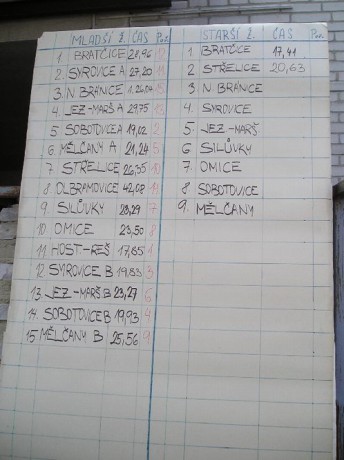 MLADŠÍ Ž. ČAS Poř.
1. BRATČICE 28,96 12
2. SYROVICE A 27,20 11
3. N. BRÁNICE 1.26,04 15
4. JEZ-MARŠ A 29,75 13
5 SOBOTOVICE A 19,02 2
6 MĚLČANY A 21,24 5
7. STŘELICE 26,35 10
8. OLBRAMOVICE 42,08 14
9. SILŮVKY 23,29 7
10. OMICE 23,50 8
11 HOST.-REŠ 17,65 1
12 SYROVICE B 19,83 3
13 JEZ-MARŠ B 23,27 6
14. SOBOTOVICE B 19,93 4
15 MĚLČANY B 25,56 9
STARŠÍ Ž. ČAS Poř.
1. BRATČICE 17,41
2 STŘELICE 20,63
3. N BRÁNICE
4. SYROVICE
5. JEZ-MARŠ
6 SILŮVKY
7 OMICE
8 SOBOTOVICE
9. MĚLČANY